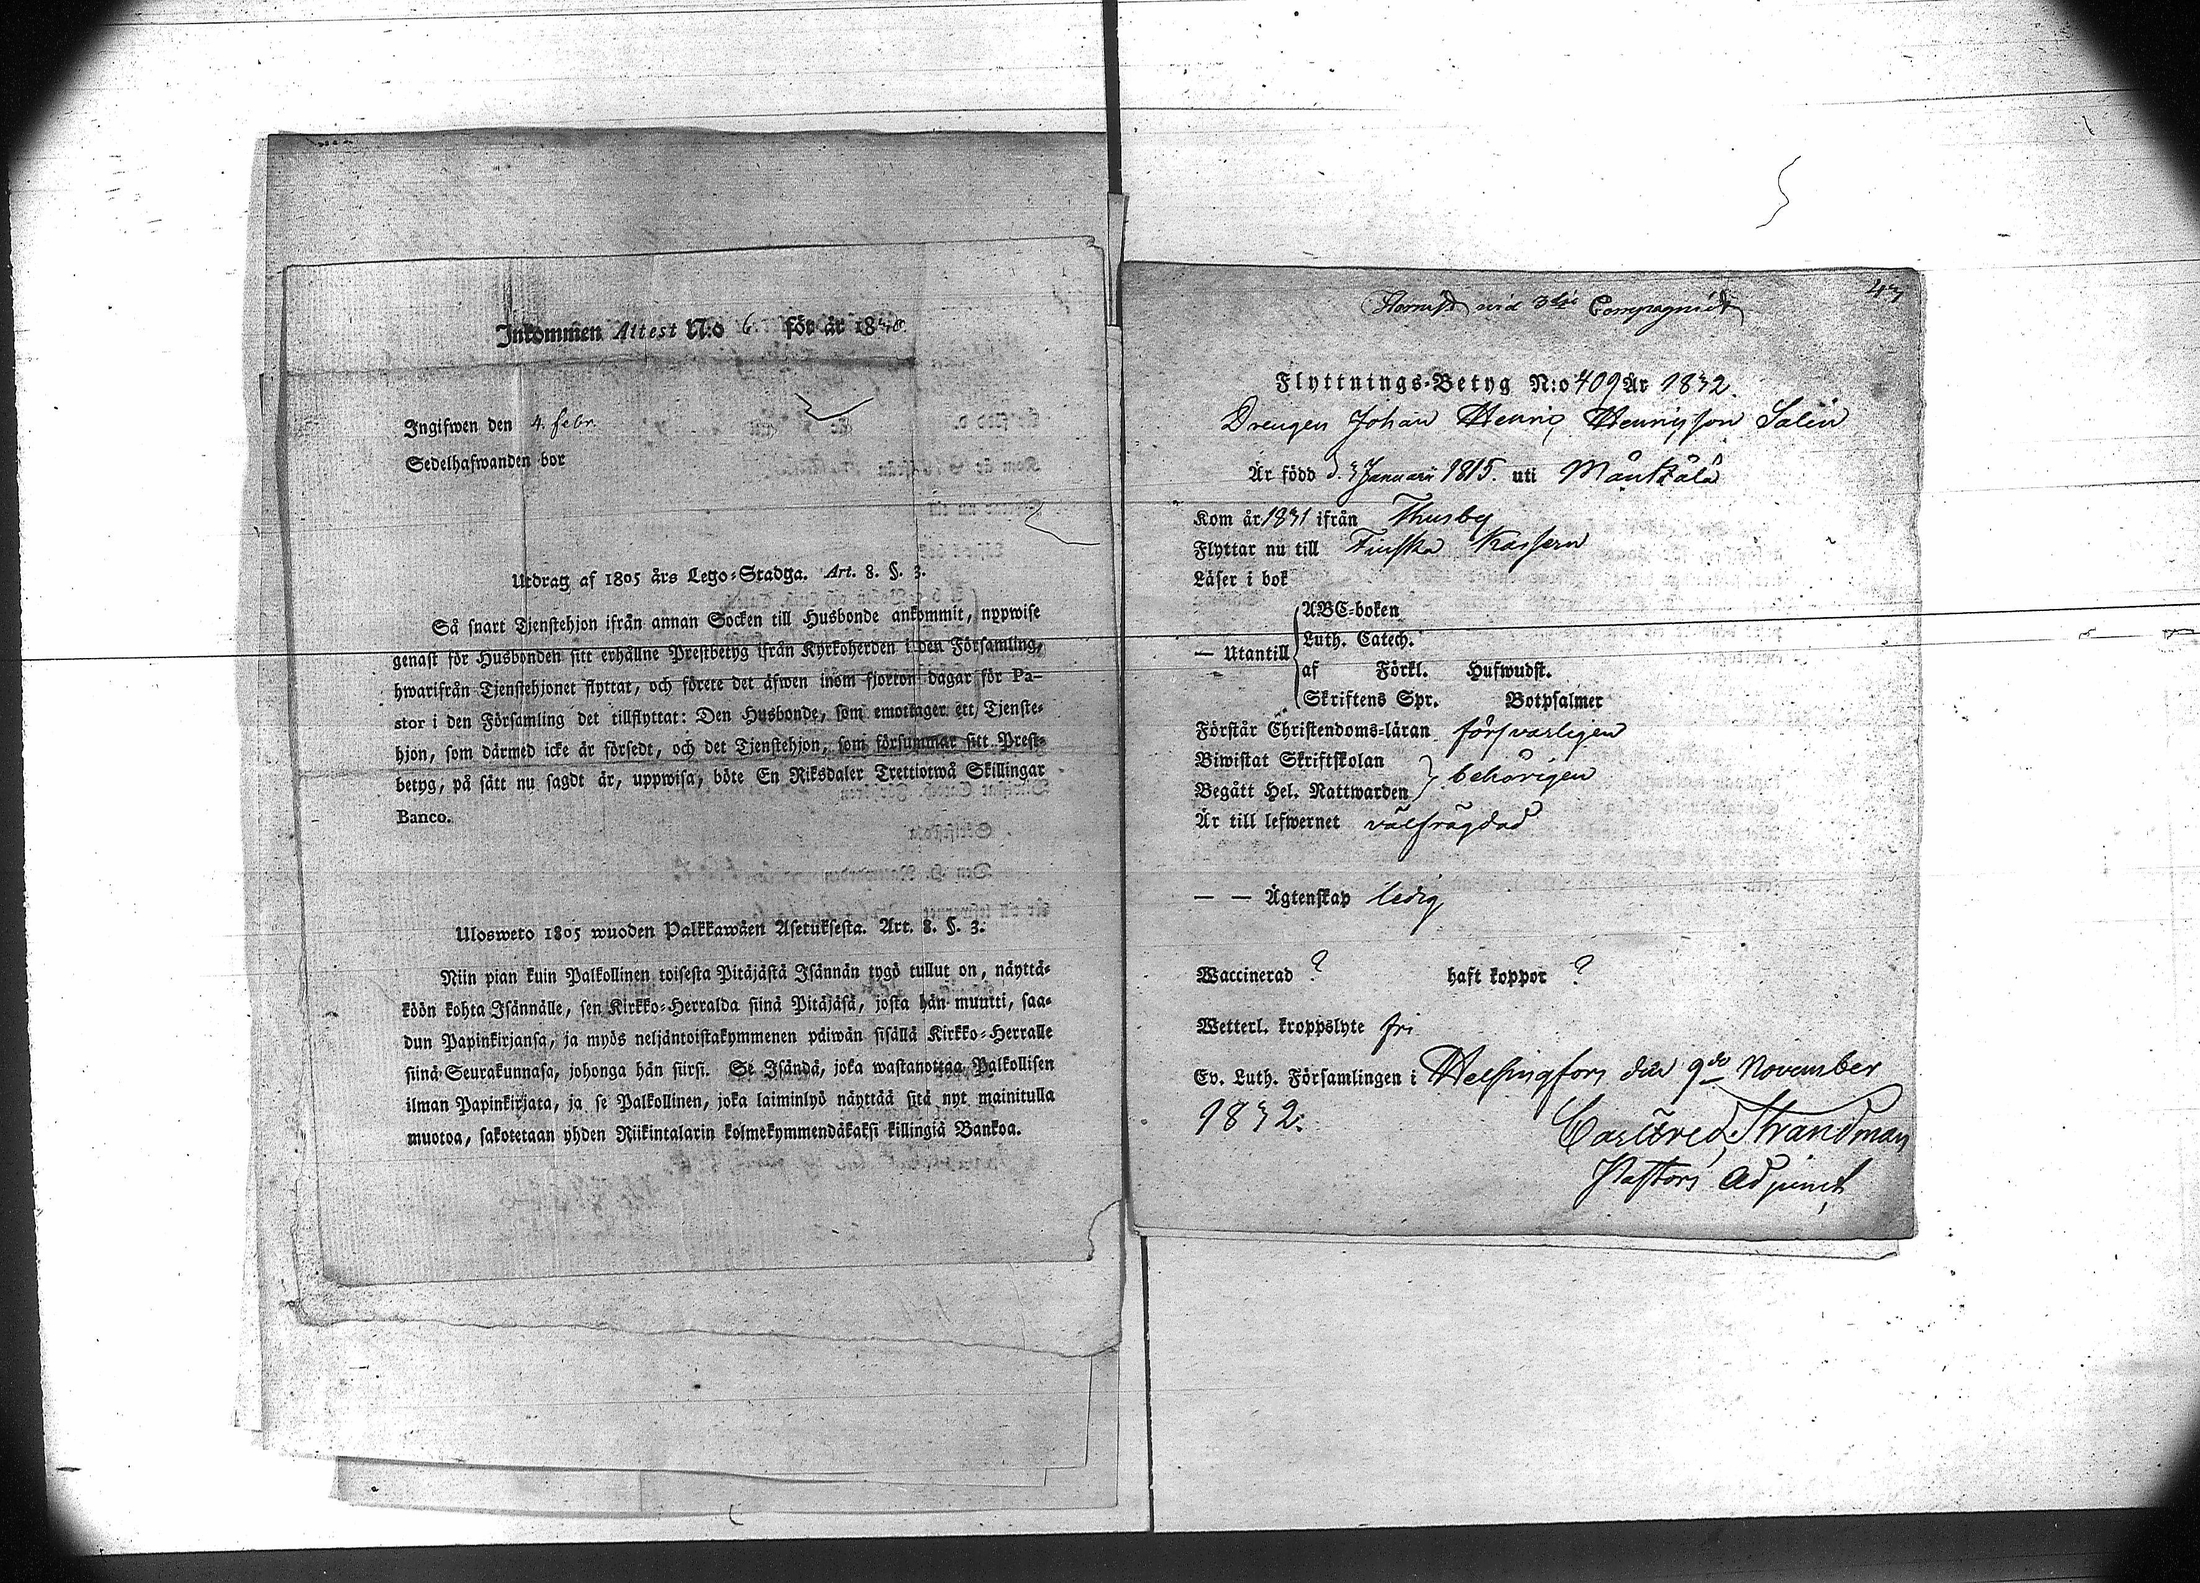 Inkommen Attest N:o 6 för år 18
Ingifwen den 4. febr.
Sedelhafwanden bor
Utdrag af 1805 års Lego-Stadga. Art. 8. §. 3.
Så snart Tjenstehjon ifrån annan Socken till Husbonde ankommit, uppwise
genast för Husbonden sitt erhållne Prestbetyg ifrån Kyrkoherden i den Församling,
hwarifrån Tjenstehjonet flyttat, och förete det äfwen inom fjorton dagar för Pa-
stor i den Församling det tillflyttat: Den Husbonde, som emottager ett Tjenste-
hjon, som därmed icke är försedt, och det Tjenstehjon, som försummar sitt Prest-
betyg, på sätt nu sagdt är, uppwisa, böte En Riksdaler Trettiotwå Skillingar
Banco.
Ulosweto 1805 wuoden Palkkawäen Asetuksesta. Art. 8. §. 3.
Niin pian kuin Palkollinen toisesta Pitäjästä Isännän tygö tullut on, näyttä-
köön kohta Isännälle, sen Kirkko-Herralda siinä Pitäjäsä, josta hän muutti, saa-
dun Papinkirjansa, ja myös neljäntoistakymmenen päiwän sisällä Kirkko-Herralle
siinä Seurakunnasa, johonga hän siirsi. Se Isändä, joka wastanottaa Palkollisen
ilman Papinkirjata, ja se Palkollinen, joka laiminlyö näyttää sitä nyt mainitulla
muotoa, sakotetaan yhden Riikintalarin kolmekymmendäkaksi killingiä Bankoa.
47
vid 3die Compagniet
Flyttnings-Betyg N:o 409 År 1832.
Drengen Johan Henric Henricsson Salin
Är född d. 3 Januari 1815. uti Mäntzälä
Kom år 1831 ifrån Thusby
Flyttar nu till Finska Kasern
Läser i bok
— Utantill
ABC-boken
Luth. Catech.
af Förkl. Hufwudst.
Skriftens Spr. Botpsalmer
Förstår Christendoms-läran försvarligen
Biwistat Skriftskolan
Begått Hel. Nattwarden } behörigen
Är till lefwernet välfrägdad
— — Ägtenskap ledig
Waccinerad ? haft koppor ?
Wetterl. kroppslyte fri
Ev. Luth. Församlingen i Helsingfors den 9de November
1832.
Strandman
Pastors Adjunct